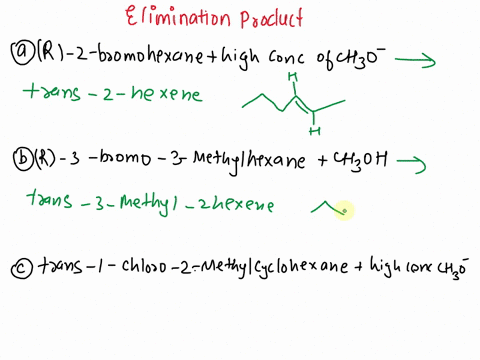 Elimination Product
(a) (R)-2-bromohexane + high conc of CH3O⁻ →
trans-2-hexene
H
H
(b) (R)-3-bromo-3-Methylhexane + CH3OH →
trans-3-Methyl-2hexene
(c) trans-1-chloro-2-Methylcyclohexane + high conc CH3O⁻